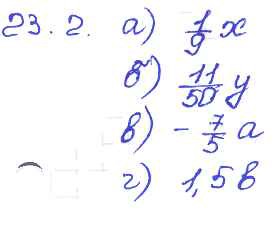 23.2. а) 1/9 x
б) 11/50 y
в) - 7/5 a
г) 1,5 в